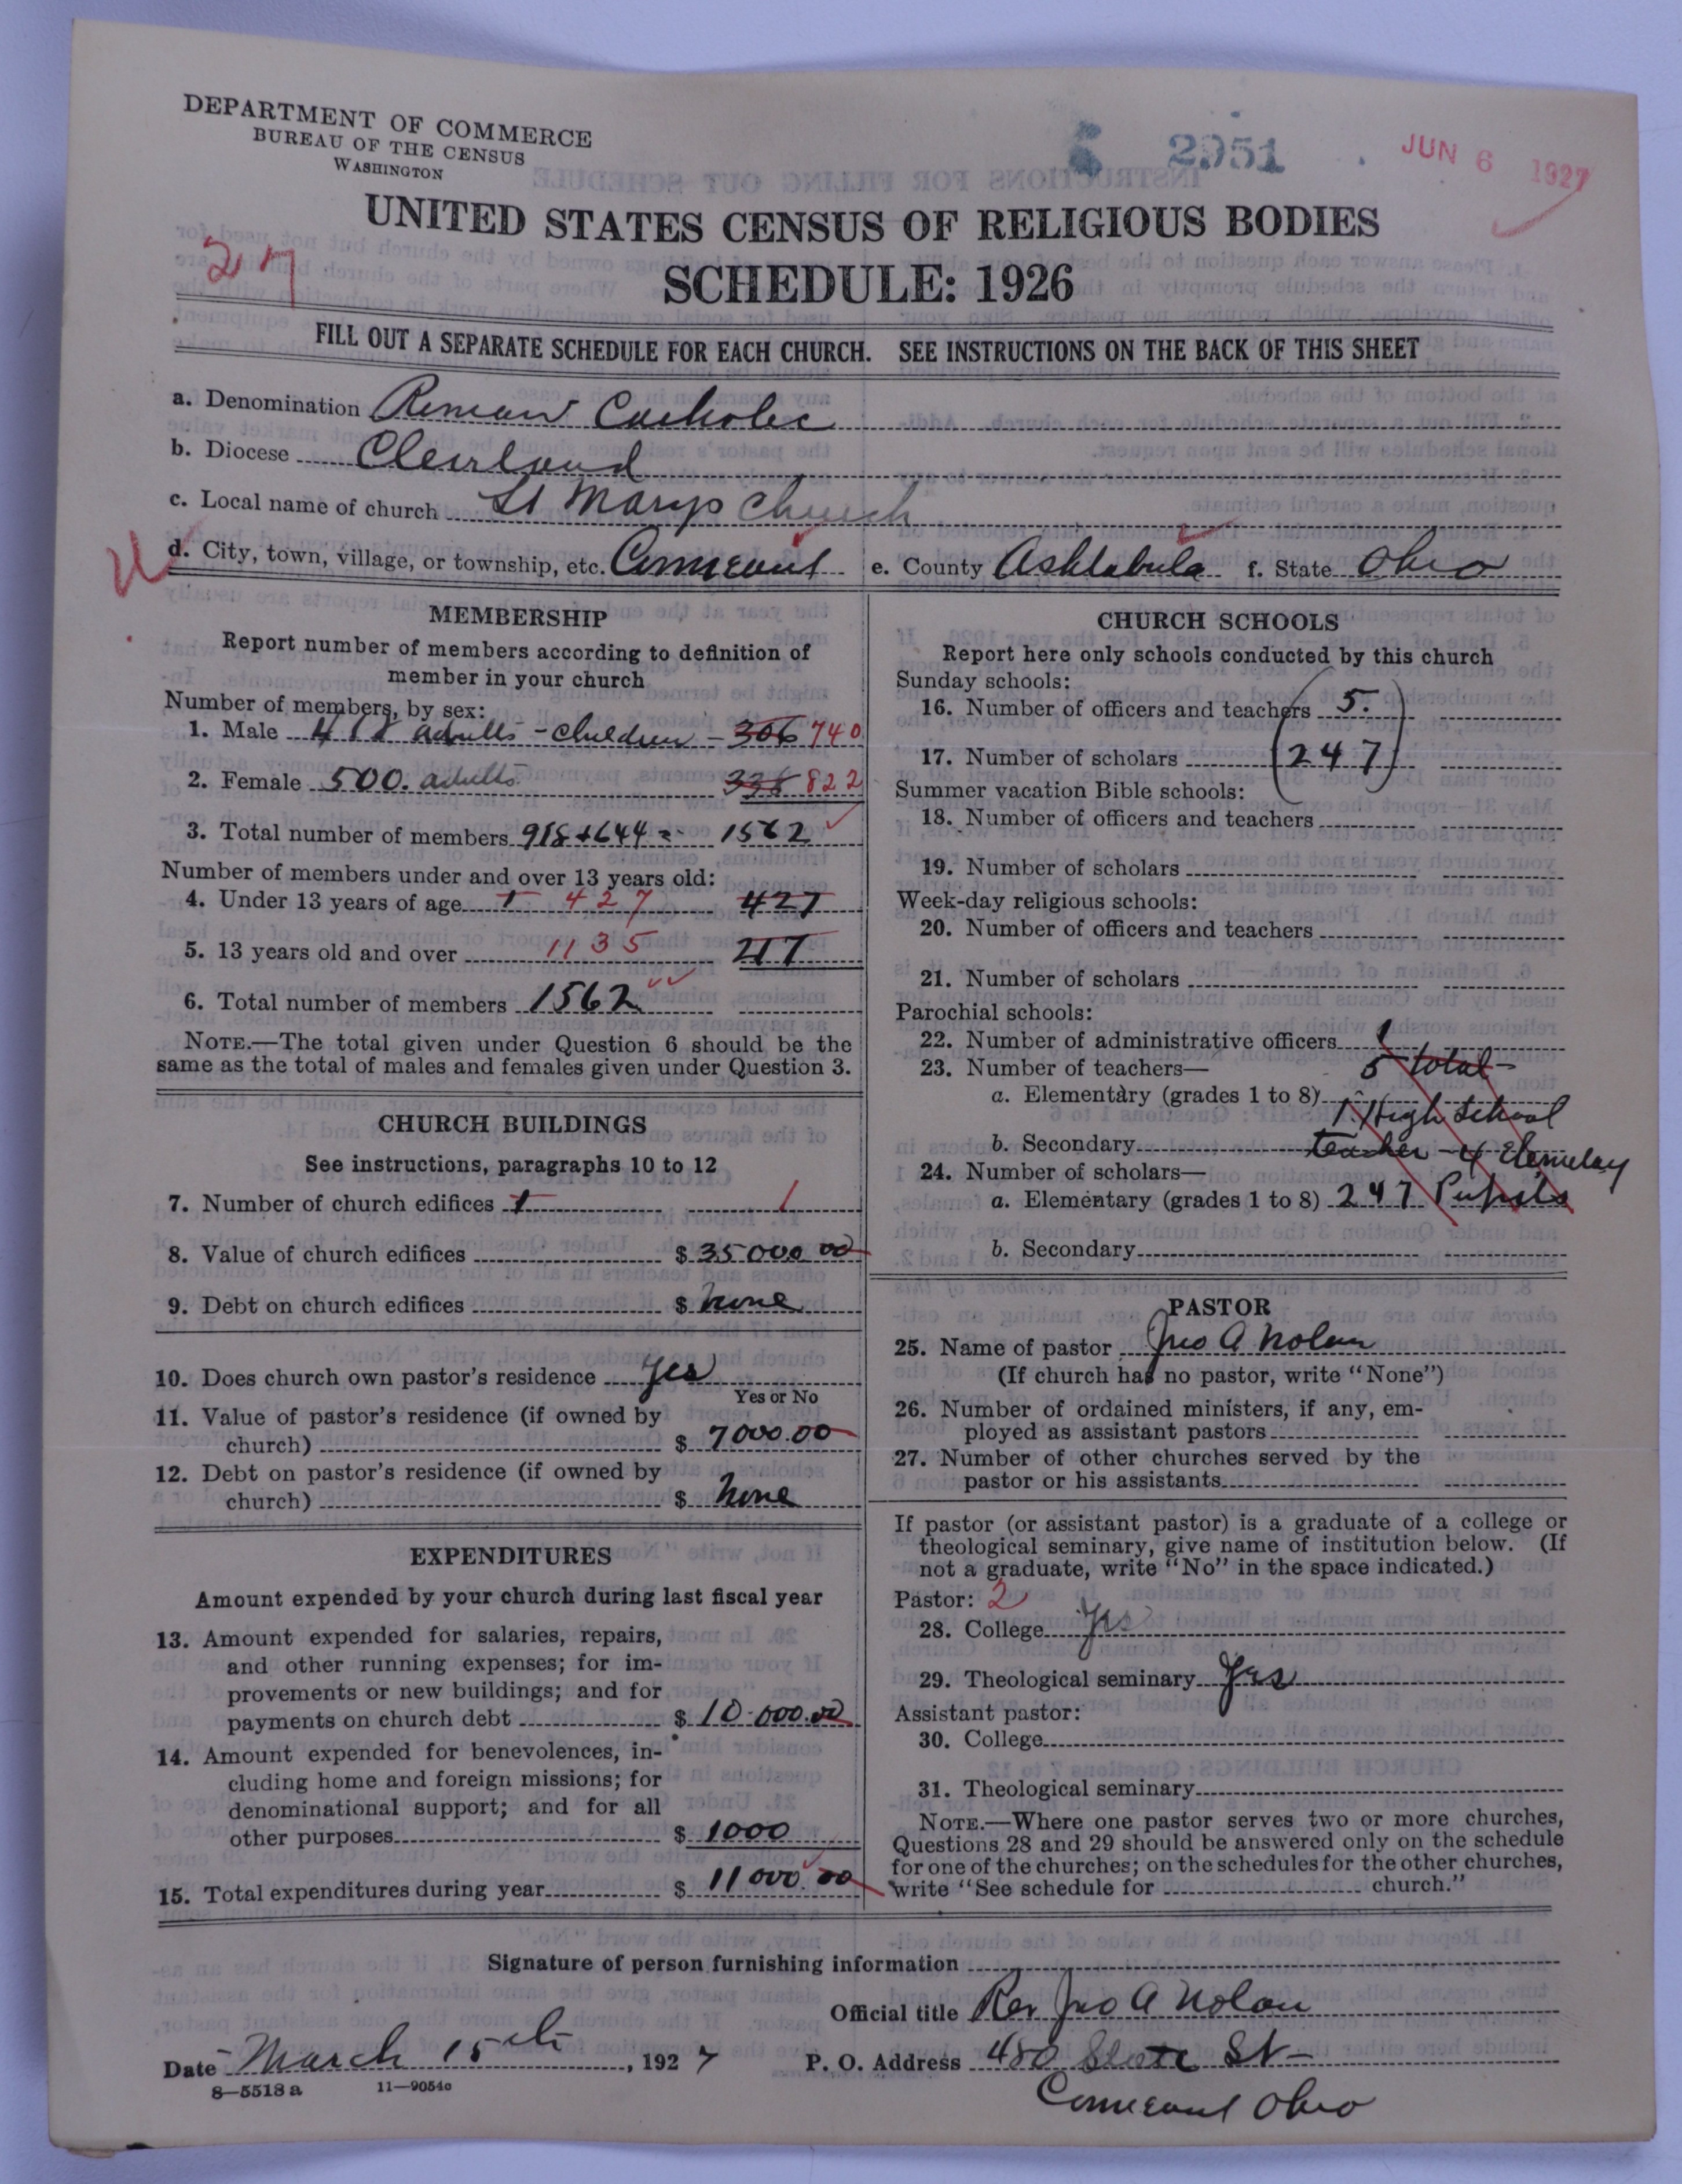 DEPARTMENT OF COMMERCE
BUREAU OF THE CENSUS
WASHINGTON
2951
JUN 6 1927
UNITED STATES CENSUS OF RELIGIOUS BODIES
27
SCHEDULE: 1926
FILL OUT A SEPARATE SCHEDULE FOR EACH CHURCH. SEE INSTRUCTIONS ON THE BACK OF THIS SHEET
a. Denomination Roman Catholic
b. Diocese Cleveland
c. Local name of church St Marys Church
d. City, town, village, or township, etc. Conneaut e. County Ashtabula f. State Ohio
MEMBERSHIP
Report number of members according to definition of
member in your church
Number of members, by sex:
1. Male 418 adults - children - 306 740
2. Female 500. adults 338 822
3. Total number of members 918 + 644 = 1562
Number of members under and over 13 years old:
4. Under 13 years of age 427 427
5. 13 years old and over 1135 217
6. Total number of members 1562
NOTE.—The total given under Question 6 should be the
same as the total of males and females given under Question 3.
CHURCH BUILDINGS
See instructions, paragraphs 10 to 12
7. Number of church edifices 1 1
8. Value of church edifices $ 35000 00
9. Debt on church edifices $ None
10. Does church own pastor's residence Yes
Yes or No
11. Value of pastor's residence (if owned by
church) $ 7000.00
12. Debt on pastor's residence (if owned by
church) $ None
EXPENDITURES
Amount expended by your church during last fiscal year
13. Amount expended for salaries, repairs,
and other running expenses; for im-
provements or new buildings; and for
payments on church debt $ 10.000.00
14. Amount expended for benevolences, in-
cluding home and foreign missions; for
denominational support; and for all
other purposes $ 1000
15. Total expenditures during year $ 11000.00
CHURCH SCHOOLS
Report here only schools conducted by this church
Sunday schools:
16. Number of officers and teachers 5.
17. Number of scholars 247
Summer vacation Bible schools:
18. Number of officers and teachers
19. Number of scholars
Week-day religious schools:
20. Number of officers and teachers
21. Number of scholars
Parochial schools:
22. Number of administrative officers 1
23. Number of teachers— 5 total -
a. Elementary (grades 1 to 8) 1. High School
b. Secondary teacher - 4 Elemetay
24. Number of scholars—
a. Elementary (grades 1 to 8) 247 Pupils
b. Secondary
PASTOR
25. Name of pastor Jno A Nolan
(If church has no pastor, write "None")
26. Number of ordained ministers, if any, em-
ployed as assistant pastors
27. Number of other churches served by the
pastor or his assistants
If pastor (or assistant pastor) is a graduate of a college or
theological seminary, give name of institution below. (If
not a graduate, write "No" in the space indicated.)
Pastor: 2
28. College Yes
29. Theological seminary Yes
Assistant pastor:
30. College
31. Theological seminary
NOTE.—Where one pastor serves two or more churches,
Questions 28 and 29 should be answered only on the schedule
for one of the churches; on the schedules for the other churches,
write "See schedule for church."
Signature of person furnishing information
Official title Rev Jno A Nolan
Date March 15th, 1927 P. O. Address 480 State St -
8—5518 a 11—9054c
Conneaut Ohio